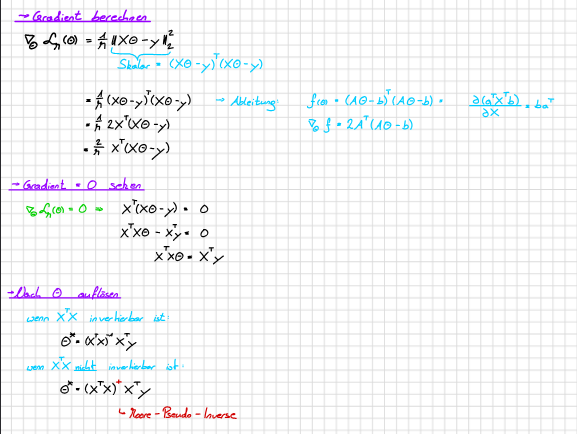 → Gradient berechnen
∇_Θ 𝓛_n(Θ) = 1/n ‖XΘ - y‖₂²
Skalar = (XΘ - y)ᵀ(XΘ - y)
= 1/n (XΘ - y)ᵀ(XΘ - y) → Ableitung: f(Θ) = (AΘ - b)ᵀ(AΘ - b) = ∂(aᵀXᵀb)/∂X = baᵀ
= 1/n 2Xᵀ(XΘ - y) ∇_Θ f = 2Aᵀ(AΘ - b)
= 2/n Xᵀ(XΘ - y)
→ Gradient = 0 setzen
∇_Θ 𝓛_n(Θ) = 0 ⇒ Xᵀ(XΘ - y) = 0
XᵀXΘ - Xᵀy = 0
XᵀXΘ = Xᵀy
→ Nach Θ auflösen
wenn XᵀX invertierbar ist:
Θ* = (XᵀX)⁻¹ Xᵀy
wenn XᵀX nicht invertierbar ist:
Θ* = (XᵀX)⁺ Xᵀy
↳ Moore-Pseudo-Inverse